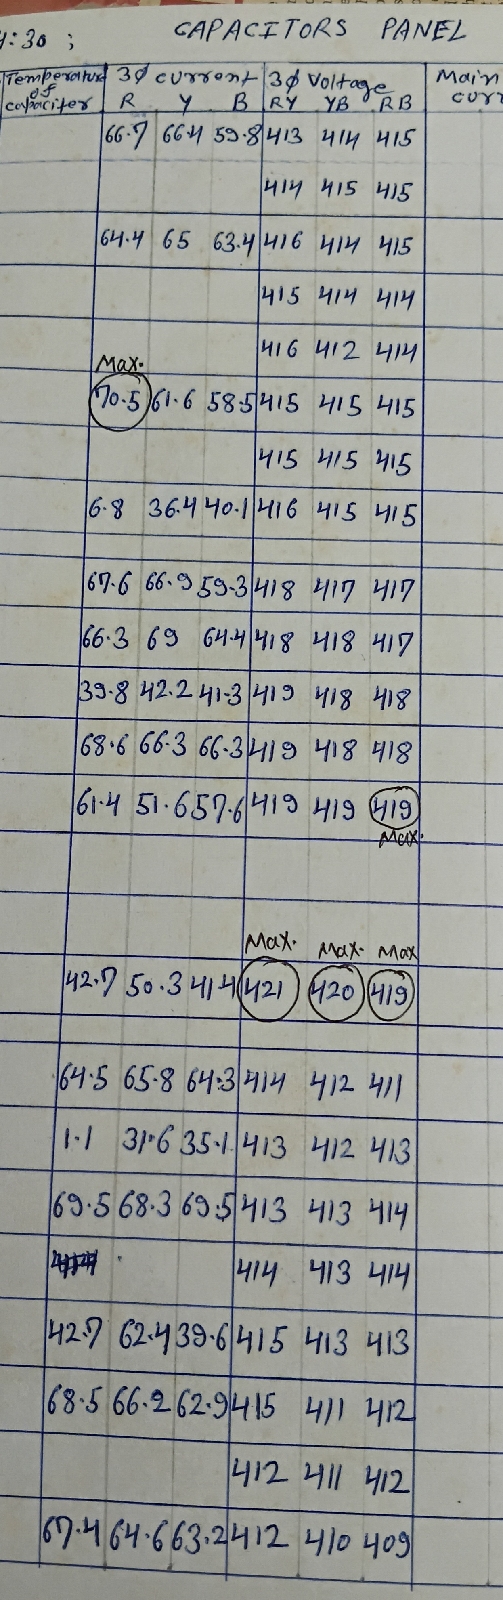 4:30 ; CAPACITORS PANEL
Temperature of capaciter 3φ current 3φ Voltage Main
R Y B RY YB RB curr
66.7 66.4 59.8 413 414 415
414 415 415
64.4 65 63.4 416 414 415
415 414 414
416 412 414
Max.
70.5 61.6 58.5 415 415 415
415 415 415
6.8 36.4 40.1 416 415 415
67.6 66.9 59.3 418 417 417
66.3 69 64.4 418 418 417
39.8 42.2 41.3 419 418 418
68.6 66.3 66.3 419 418 418
61.4 51.6 57.6 419 419 419
Max.
Max. Max. Max
42.7 50.3 414 421 420 419
64.5 65.8 64.3 414 412 411
1.1 31.6 35.1 413 412 413
69.5 68.3 69.5 413 413 414
414 413 414
42.7 62.4 39.6 415 413 413
68.5 66.2 62.9 415 411 412
412 411 412
67.4 64.6 63.2 412 410 409